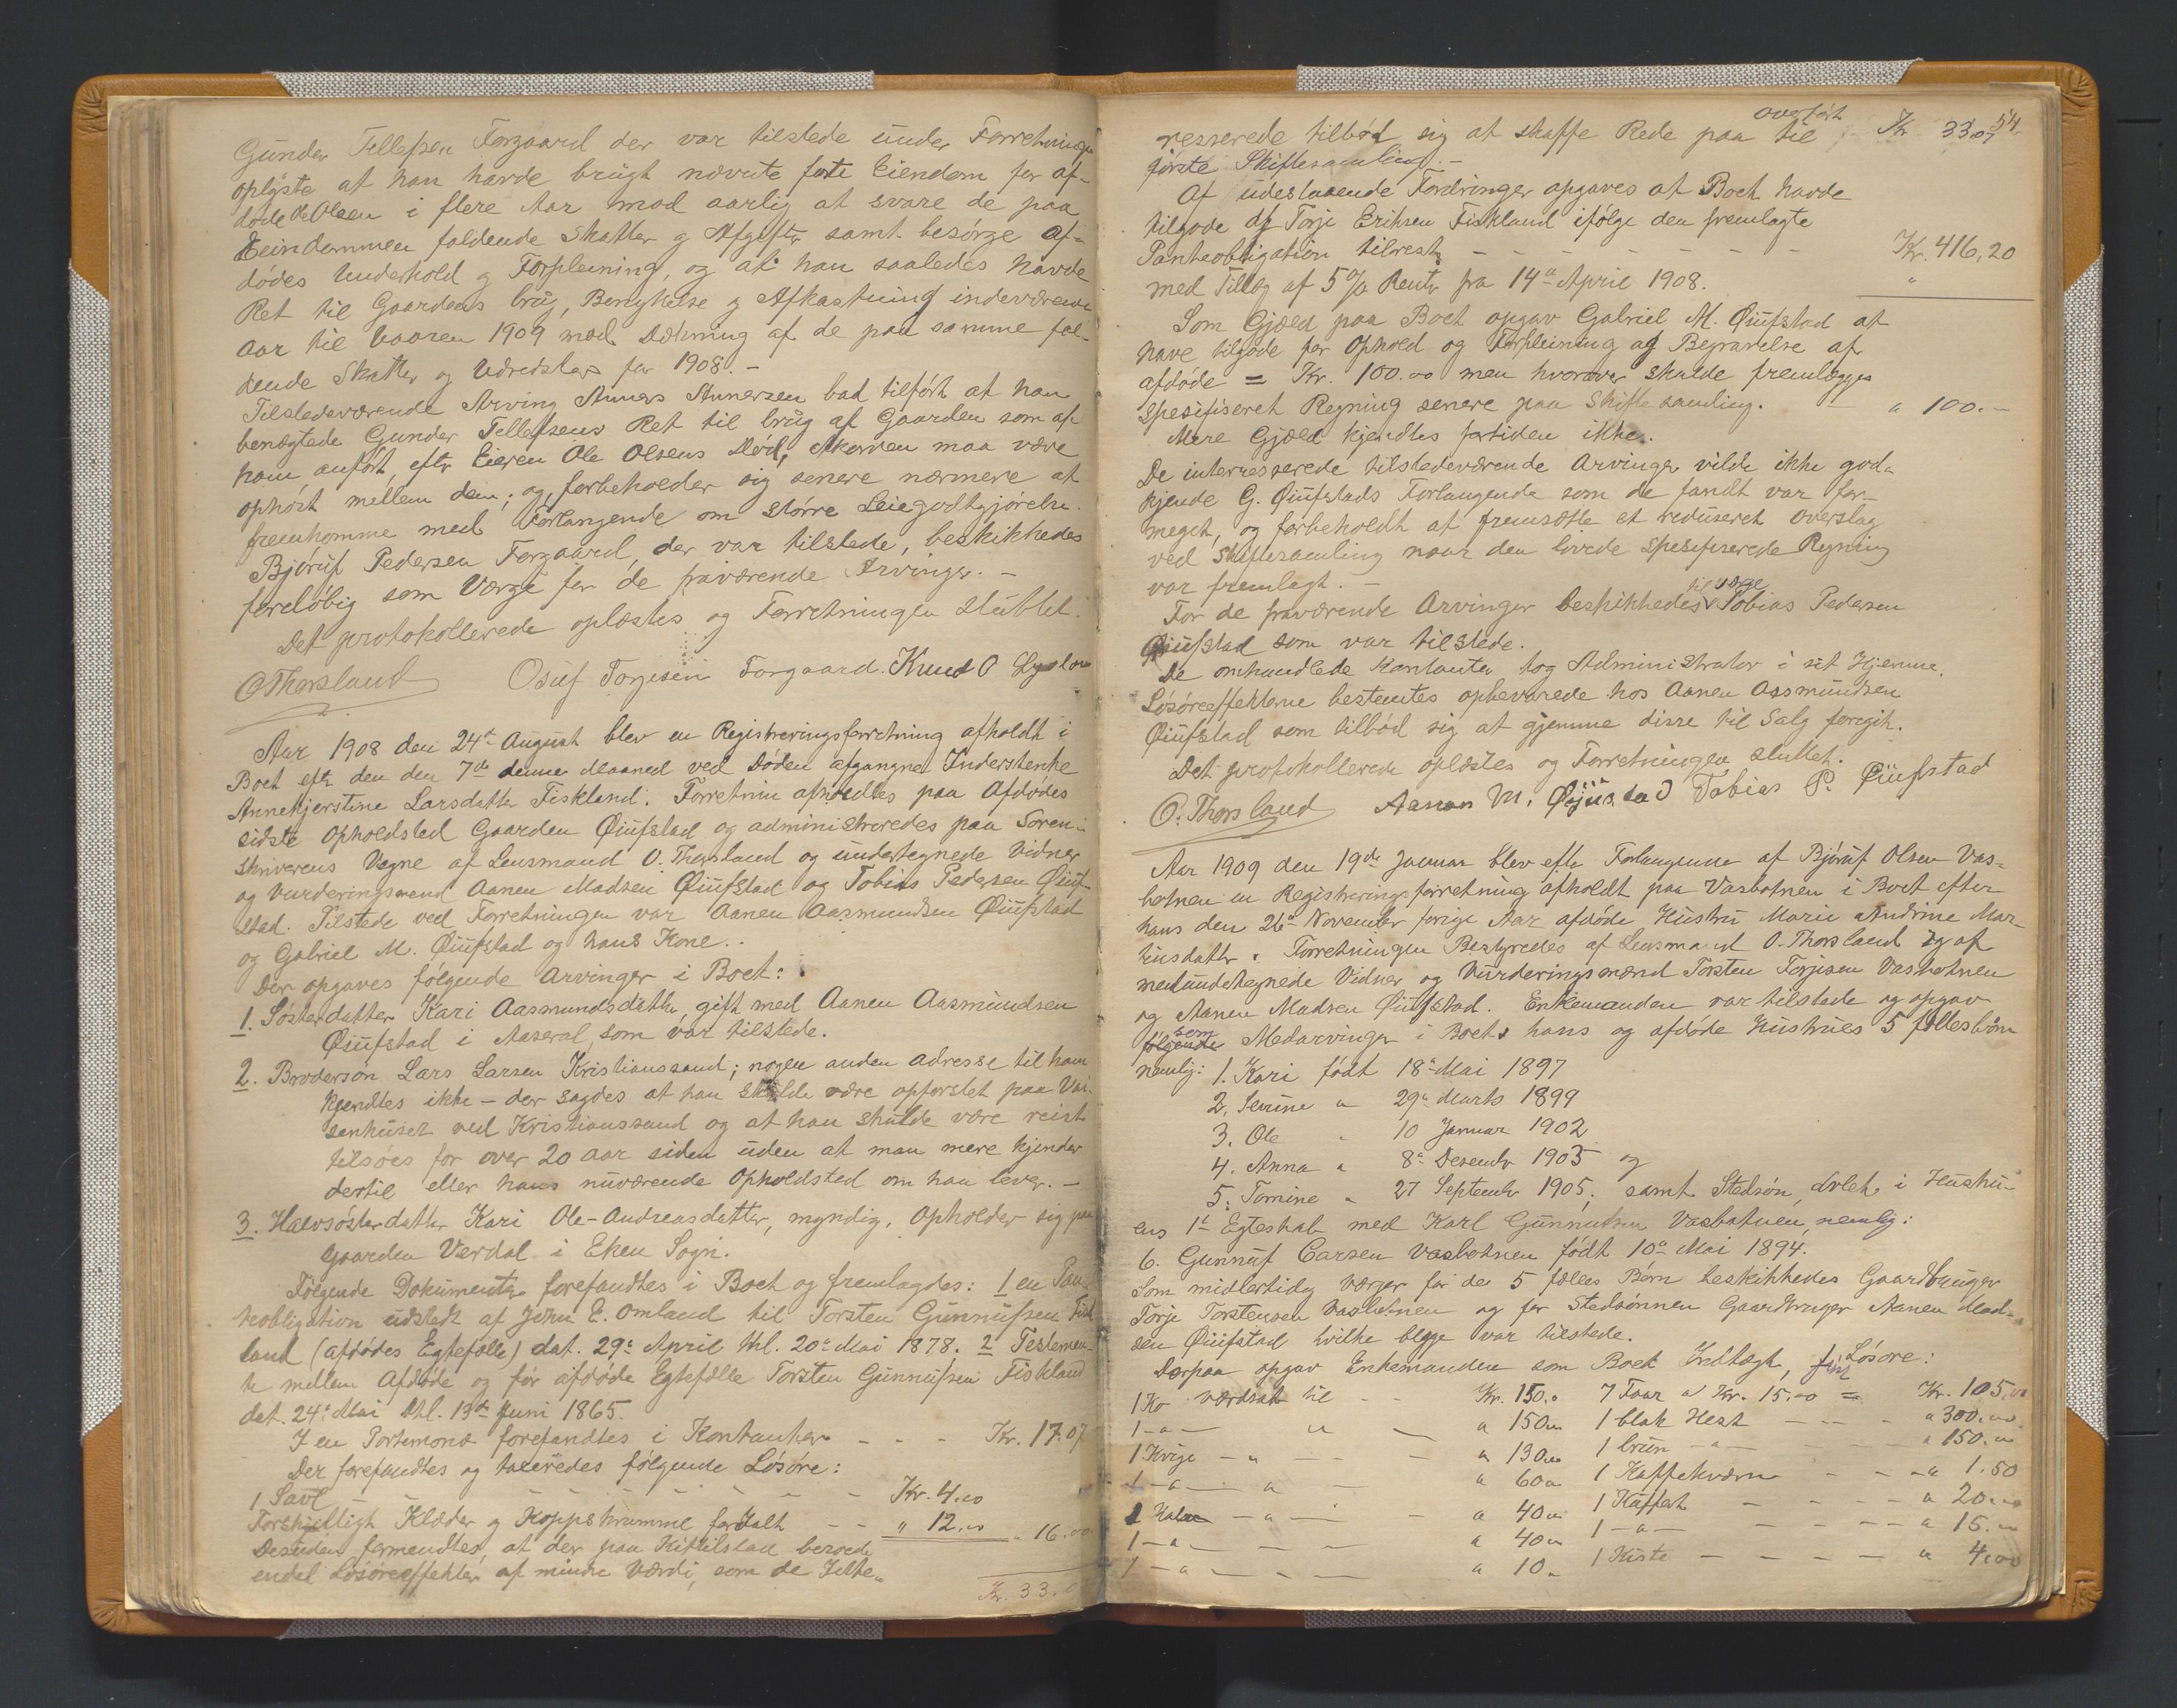 Gunder Tellefsen Forgaard der var tilstede under Forretningen
oplyste at han havde brugt nævnte faste Eiendom for af-
døde Ole Olsen i flere Aar mod aarlig at svare de paa
Eiendommen faldende Skatter og Afgifter samt besørge af-
dødes Underhold og Forpleining, og at han saaledes havde
Ret til Gaardens brug, Benyttelse og Afkastning indeværende
Aar til Vaaren 1909 mod Dækning af de paa samme fal-
dende Skatter og Udredsler for 1908. -
Tilstedeværende Arving Anners Annersen bad tilført at han
benægtede Gunder Tellefsens Ret til brug af Gaarden som af
ham anført, efter Eieren Ole Olsens Død, Akorden maa være
ophørt mellem dem; og forbeholder sig senere nærmere at
fremkomme med Forlangende om større Leiegodtgjørelse.
Bjøruf Pedersen Forgaard, der var tilstede, beskikkedes
foreløbig som Værge for de fraværende Arvinger. -
Det protokollerede oplæstes og Forretningen sluttet.
O Thorsland Osuf Torjesen Forgaard. Knud O
Aar 1908 den 24de August blev en Registreringsforretning afholdt i
Boet efter den den 7de denne Maaned ved Døden afgangne Inderstenke
Annekjerstine Larsdatter Fiskland. Forretnin afholdtes paa Afdødes
sidste Opholdsted Gaarden Øiufstad og administreredes paa Soren-
skriverens Vegne af Lensmand O. Thorsland og undertegnede Vidner
og Vurderingsmend Aanen Madsen Øiufstad og Tobias Pedersen Øiuf-
stad. Tilstede ved Forretningen var Aanen Aasmundsen Øiufstad
og Gabriel M. Øiufstad og hans Kone..
Der opgaves følgende Arvinger i Boet:
1. Søsterdatter Kari Aasmundsdatter, gift med Aanen Aasmundsen
Øiufstad i Aaseral, som var tilstede.
2. Brodersøn Lars Larsen Kristianssand; nogen anden Adresse til ham
kjendtes ikke - der sagdes at han skulde være opfostret paa Vai-
senhuset ved Kristianssand og at han skulde være reist
tilsøes for over 20 Aar siden uden at man mere kjender
dertil eller hans nuværende Opholdsted om han lever. -
3. Halvsøsterdatter Kari Ole-Andreasdatter, myndig, Opholder sig paa
Gaarden Verdal i Eken Sogn.
Følgende Dokumenter forefandtes i Boet og fremlagdes: 1 en Pan-
teobligation udstedt af John E. Omland til Torsten Gunnufsen Fisk
land (afdødes Egtefælle) dat. 29de April thl. 20de Mai 1878. 2 Testemen-
te mellem Afdøde og før afdøde Egtefælle Torsten Gunnufsen Fiskland
dat. 24de Mai thl. 13de Juni 1865.
I en Portemonæ forefandtes i Kontanter - - - Kr. 17.07
Der forefandtes og taxeredes følgende Løsøre:
1 Saul - - - - - - Kr. 4.00
Forskjelligt Klæder og Koppskrumme for Ialt - - " 12.00 " 16.00
Desuden formendtes, at der paa Kittilstad beroede
endel Løsøreeffekter af mindre Værdi, som de Inte-
Kr. 33.0
overført 54
resserede tilbød sig at skaffe Rede paa til Kr 33.07
første Skiftesamling. -
Af udestaaende Fordringer opgaves at Boet havde
tilgode af Torje Eriksen Fiskland ifølge den fremlagte
Panteobligation tilrest - - - - - - - Kr. 416,20
med Tillæg af 5% Rente fra 14de April 1908. "
Som Gjæld paa Boet opgav Gabriel M. Øiufstad at
have tilgode for Ophold og Forpleining og Begravelse af
afdøde = Kr. 100.00 men hvorover skulde fremlægges
spesifiseret Regning senere paa Skiftesamling. - " 100.-
Mere Gjæld kjendtes fortiden ikke.
De interresserede tilstedeværende Arvinger vilde ikke god-
kjende G. Øiufstads Forlangende som de fandt var for-
meget, og forbeholdt at fremsætte et reduseret Overslag
ved Skiftesamling naar den lovede spesifiserede Regning
var fremlagt. -
til værge
For de fraværende Arvinger beskikkedes Tobias Pedersen
Øiufstad som var tilstede.
De omhandlede Kontanter tog Administrator i sit Hjemme.
Løsøreeffekterne bestemtes opbevarede hos Aanen Aasmundsen
Øiufstad som tilbød sig at gjemme disse til Salg foregik.
Det protokollerede oplæstes og Forretningen sluttet.
O. Thorsland Aanon M. Øyustad Tobias P. Øiufstad
Aar 1909 den 19de Januar blev efter Forlangende af Bjøruf Olsen Vas-
botnen en Registreringsforretning afholdt paa Vasbotnen i Boet efter
hans den 26de November forige Aar afdøde Hustru Marie Andrine Mar-
tinsdatter. Forretningen Bestyredes af Lensmand O. Thorsland og af
medundertegnede Vidner og Vurderingsmænd Torsten Torjesen Vasbotnen
og Aanen Madsen Øiufstad. Enkemanden var tilstede og opgav
som
følgende Medarvinger i Boet: hans og afdøde Hustrues 5 fællesbørn
nemlig: 1. Kari født 18de Mai 1897
2. Sevine " 29de Marts 1899
3. Ole " 10 Januar 1902
4. Anna " 8de Desember 1903 og
5. Tomine " 27 September 1905; samt Stedsøn, avlet i Hustru-
ens 1ste Egteskab med Karl Gunnufsen Vasbotnen, nemlig:
6. Gunnuf Carsen Vasbotnen født 10de Mai 1894.
Som midlertidig Værger for de 5 fælles Børn beskikkedes Gaardbruger
Torje Torstensen Vasbotnen og for Stedsønnen Gaardbruger Aanen Mad-
sen Øiufstad hvilke begge var tilstede.
Derpaa opgav Enkemanden som Boet Indtægt, Løsøre:
1 Ko værdsat til - - Kr. 150.0 7 Faar a Kr. 15.00 = Kr. 105.00
1 -"- " - " 150.00 1 blak Hest - - - " 300.00
1 Kvige - " - - - " 130.00 1 brun -"- - " 150.00
1 -"- " - " 60.00 1 Kaffekværn - - - " 1.50
1 Kalv - " - - " 40.00 1 Kuffert - - - - " 20.00
1 -"- - - " 40.00 1 -"- - - - - " 15.00
1 -"- - - - " 10.00 1 Kiste - - - - " 4.00